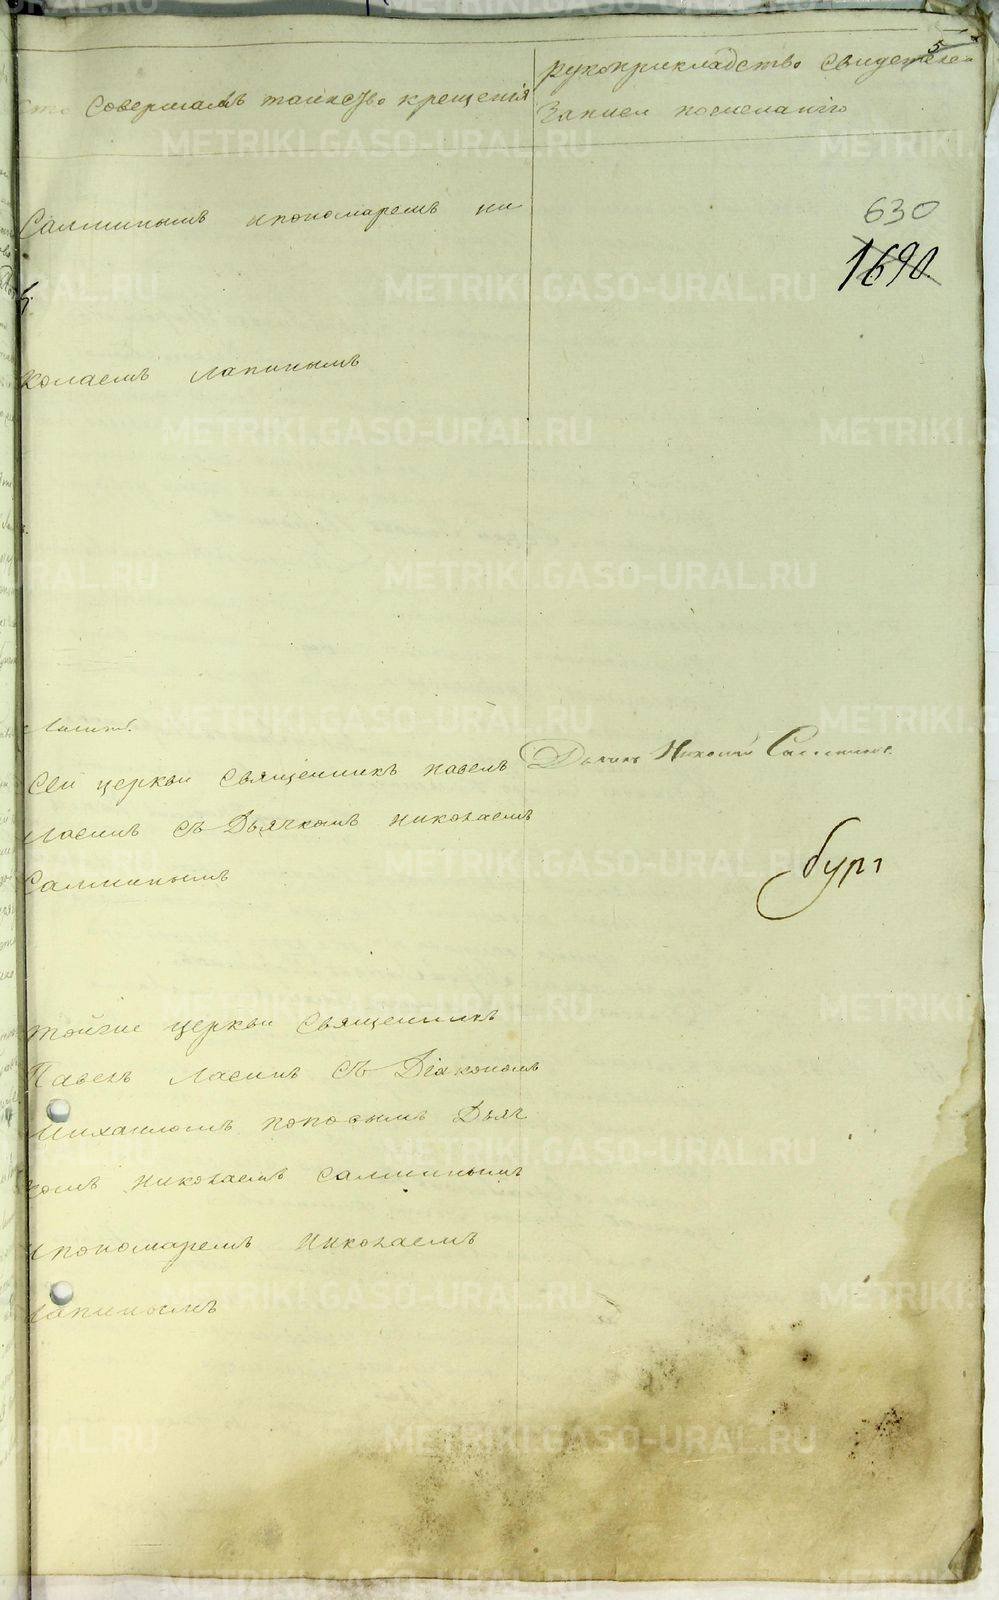 Кто совершалъ таинство крещенія
рукоприкладство свидетелей
записи по желанію
5
Салминымъ и пономаремъ ни
630
1690
колаемъ Лапинымъ
Сей церкви священникъ павелъ
съ Дьячкомъ николаемъ
Салминымъ
Дьячекъ Николай Салминъ
бург
тойже церкви священникъ
Павелъ съ Діакономъ
Михаиломъ поповымъ Дьяч
комъ николаемъ салминымъ
и пономаремъ николаемъ
Лапинымъ
METRIKI.GASO-URAL.RU